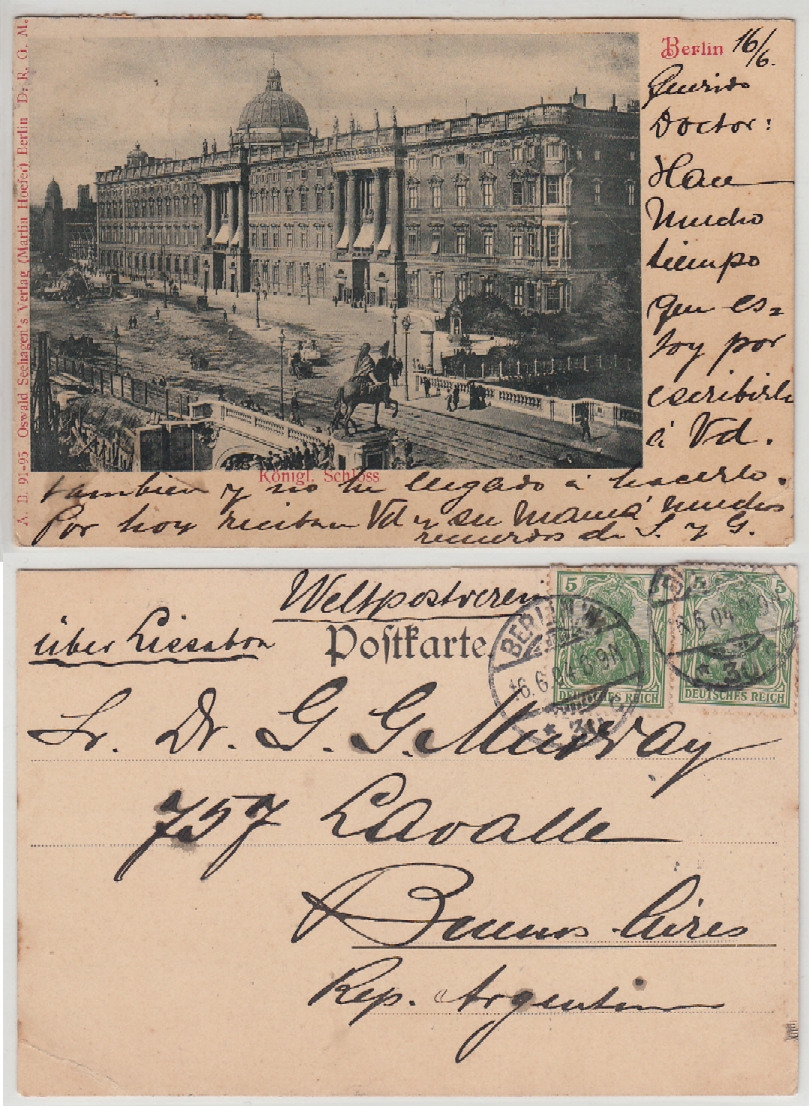 A. B. 91-95 Oswald Seehagen's Verlag (Martin Hoefer) Berlin D. R. G. M.
Berlin 16/6.
Querido
Doctor:
Hace
mucho
tiempo
que es=
toy por
escribirle
á Vd.
Königl. Schloss
tambien y no he llegado á hacerlo.
Por hoy reciban Vd y su mamá muchos
recuerdos de S. y G.
Weltpostverein
über Lissabon
Postkarte
5
5
DEUTSCHES REICH
DEUTSCHES REICH
BERLIN W.
16.6.04.6-9N.
Sr. Dr. G. G. Murray
757 Lavalle
Buenos Aires
Rep. Argentina